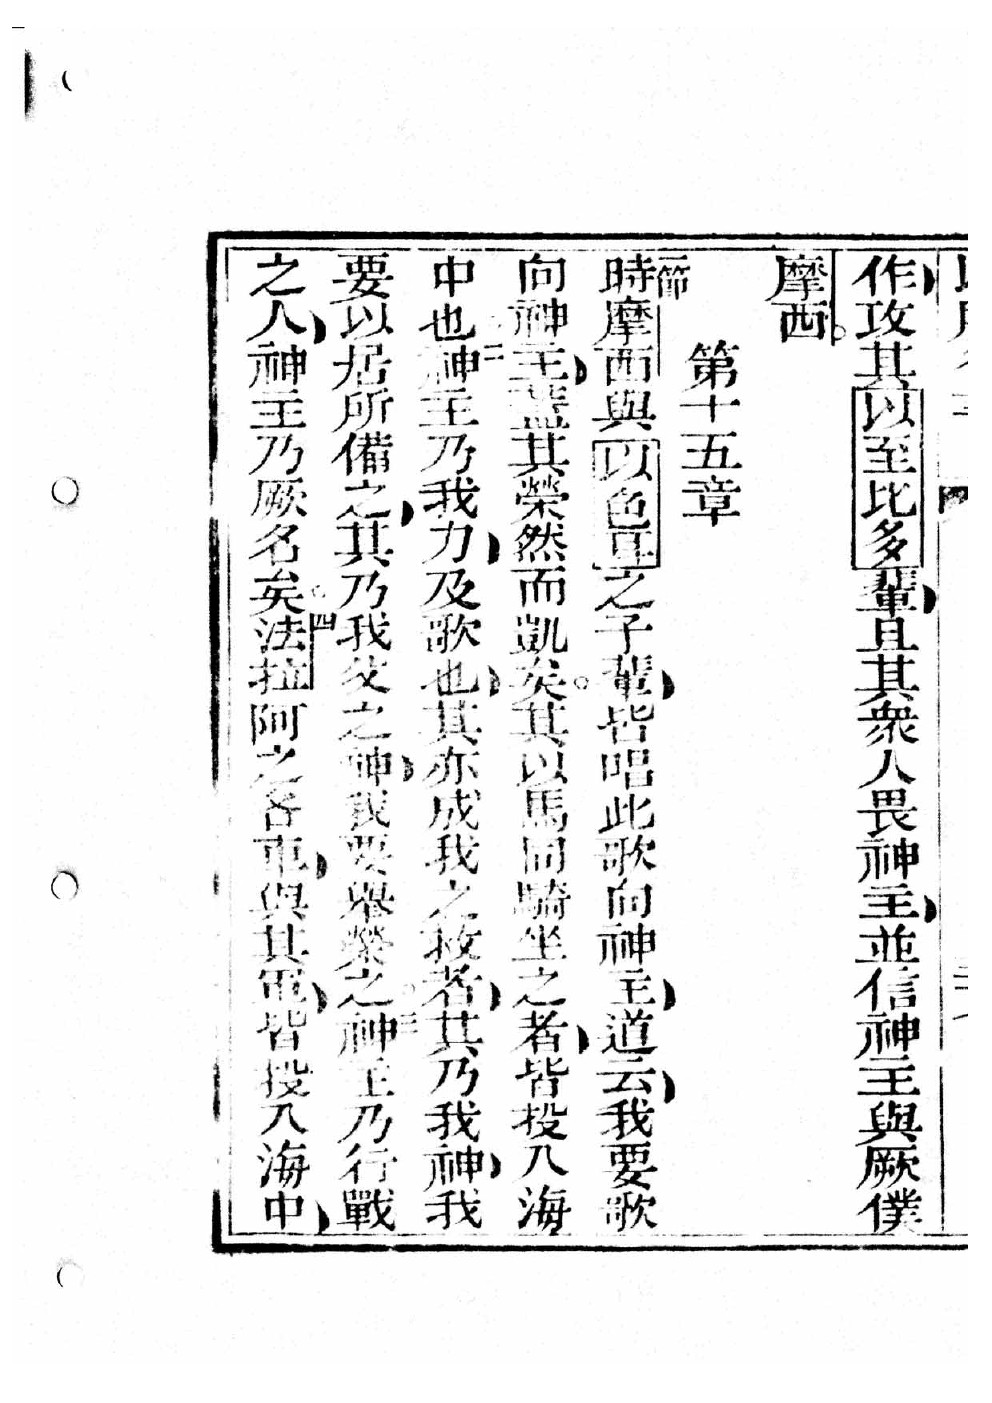 作攻其以至比多輩且其衆人畏神主並信神主與厥僕
摩西
第十五章
一節時摩西與以色耳之子輩皆唱此歌向神主道云我要歌
向神主蓋其榮然而凱矣其以馬同騎坐之者皆投入海
中也二神主乃我力及歌也其亦成我之救者其乃我神我
要以居所備之其乃我父之神我要舉榮之三神主乃行戰
之人神主乃厥名矣四法拉阿之各車與其軍皆投入海中